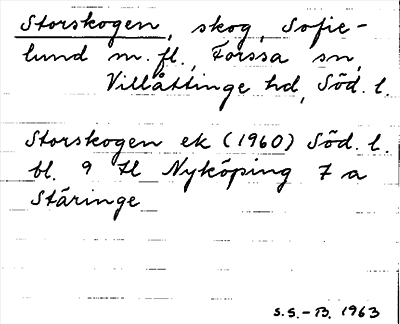 Storskogen, skog, Sofie-
lund m. fl., Forssa sn,
Villåttinge hd, Söd. l.
Storskogen ek (1960) Söd. l.
bl. 9 H Nyköping 7 a
Stäringe
S.S.-B. 1963